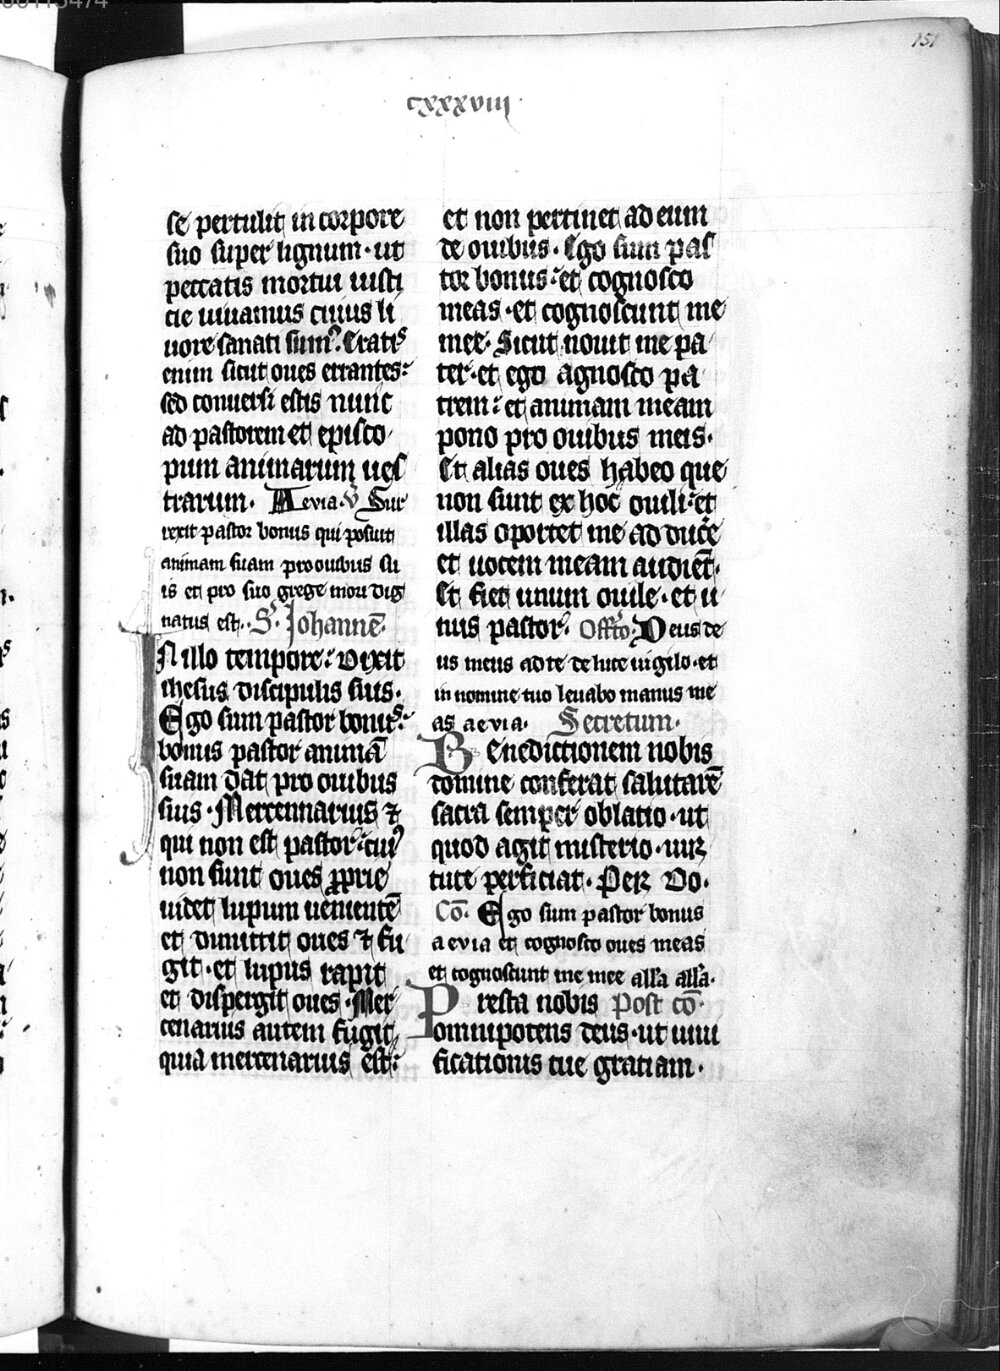 151
cxxxviii
se pertulit in corpore
suo super lignum · ut
peccatis mortui iusti
cie uiuamus cuius li
uore sanati sumꝰ. Eratiˢ
enim sicut oues errantes:
sed conuersi estis nunc
ad pastorem et episco
pum animarum ues
trarum. Aevia. V̕ Sur
rexit pastor bonus qui posuit
animam suam pro ouibus su
is et pro suo grege mori dig
natus est. S. Johannē.
IN illo tempore: Dixit
ihesus discipulis suis.
Ego sum pastor bonus:
bonus pastor animā
suam dat pro ouibus
suis. Mercennarius ⁊
qui non est pastor: cuiꝰ
non sunt oues ꝓprie
uidet lupum uenientē
et dimittit oues ⁊ fu
git · et lupus rapit
et dispergit oues. Mer
cenarius autem fugit
quia mercenarius est:
et non pertinet ad eum
de ouibus. Ego sum pas
tor bonus: et cognosco
meas · et cognoscunt me
mee. Sicut nouit me pa
ter · et ego agnosco pa
trem: et animam meam
pono pro ouibus meis.
Et alias oues habeo que
non sunt ex hoc ouili: et
illas oportet me adducē
et uocem meam audiēt.
Et fiet unum ouile · et u
nus pastor. Offr̄o. Deus de
us meus ad te de luce uigilo · et
in nomine tuo leuabo manus me
as aevia. Secretum.
Benedictionem nobis
domine conferat salutarē
sacra semper oblatio · ut
quod agit misterio · uirꝫ
tute perficiat. Per do.
Cō. Ego sum pastor bonus
aevia et cognosco oues meas
et cognoscunt me mee all'a all'a.
Presta nobis Post cō.
omnipotens deus · ut uiui
ficationis tue gratiam.